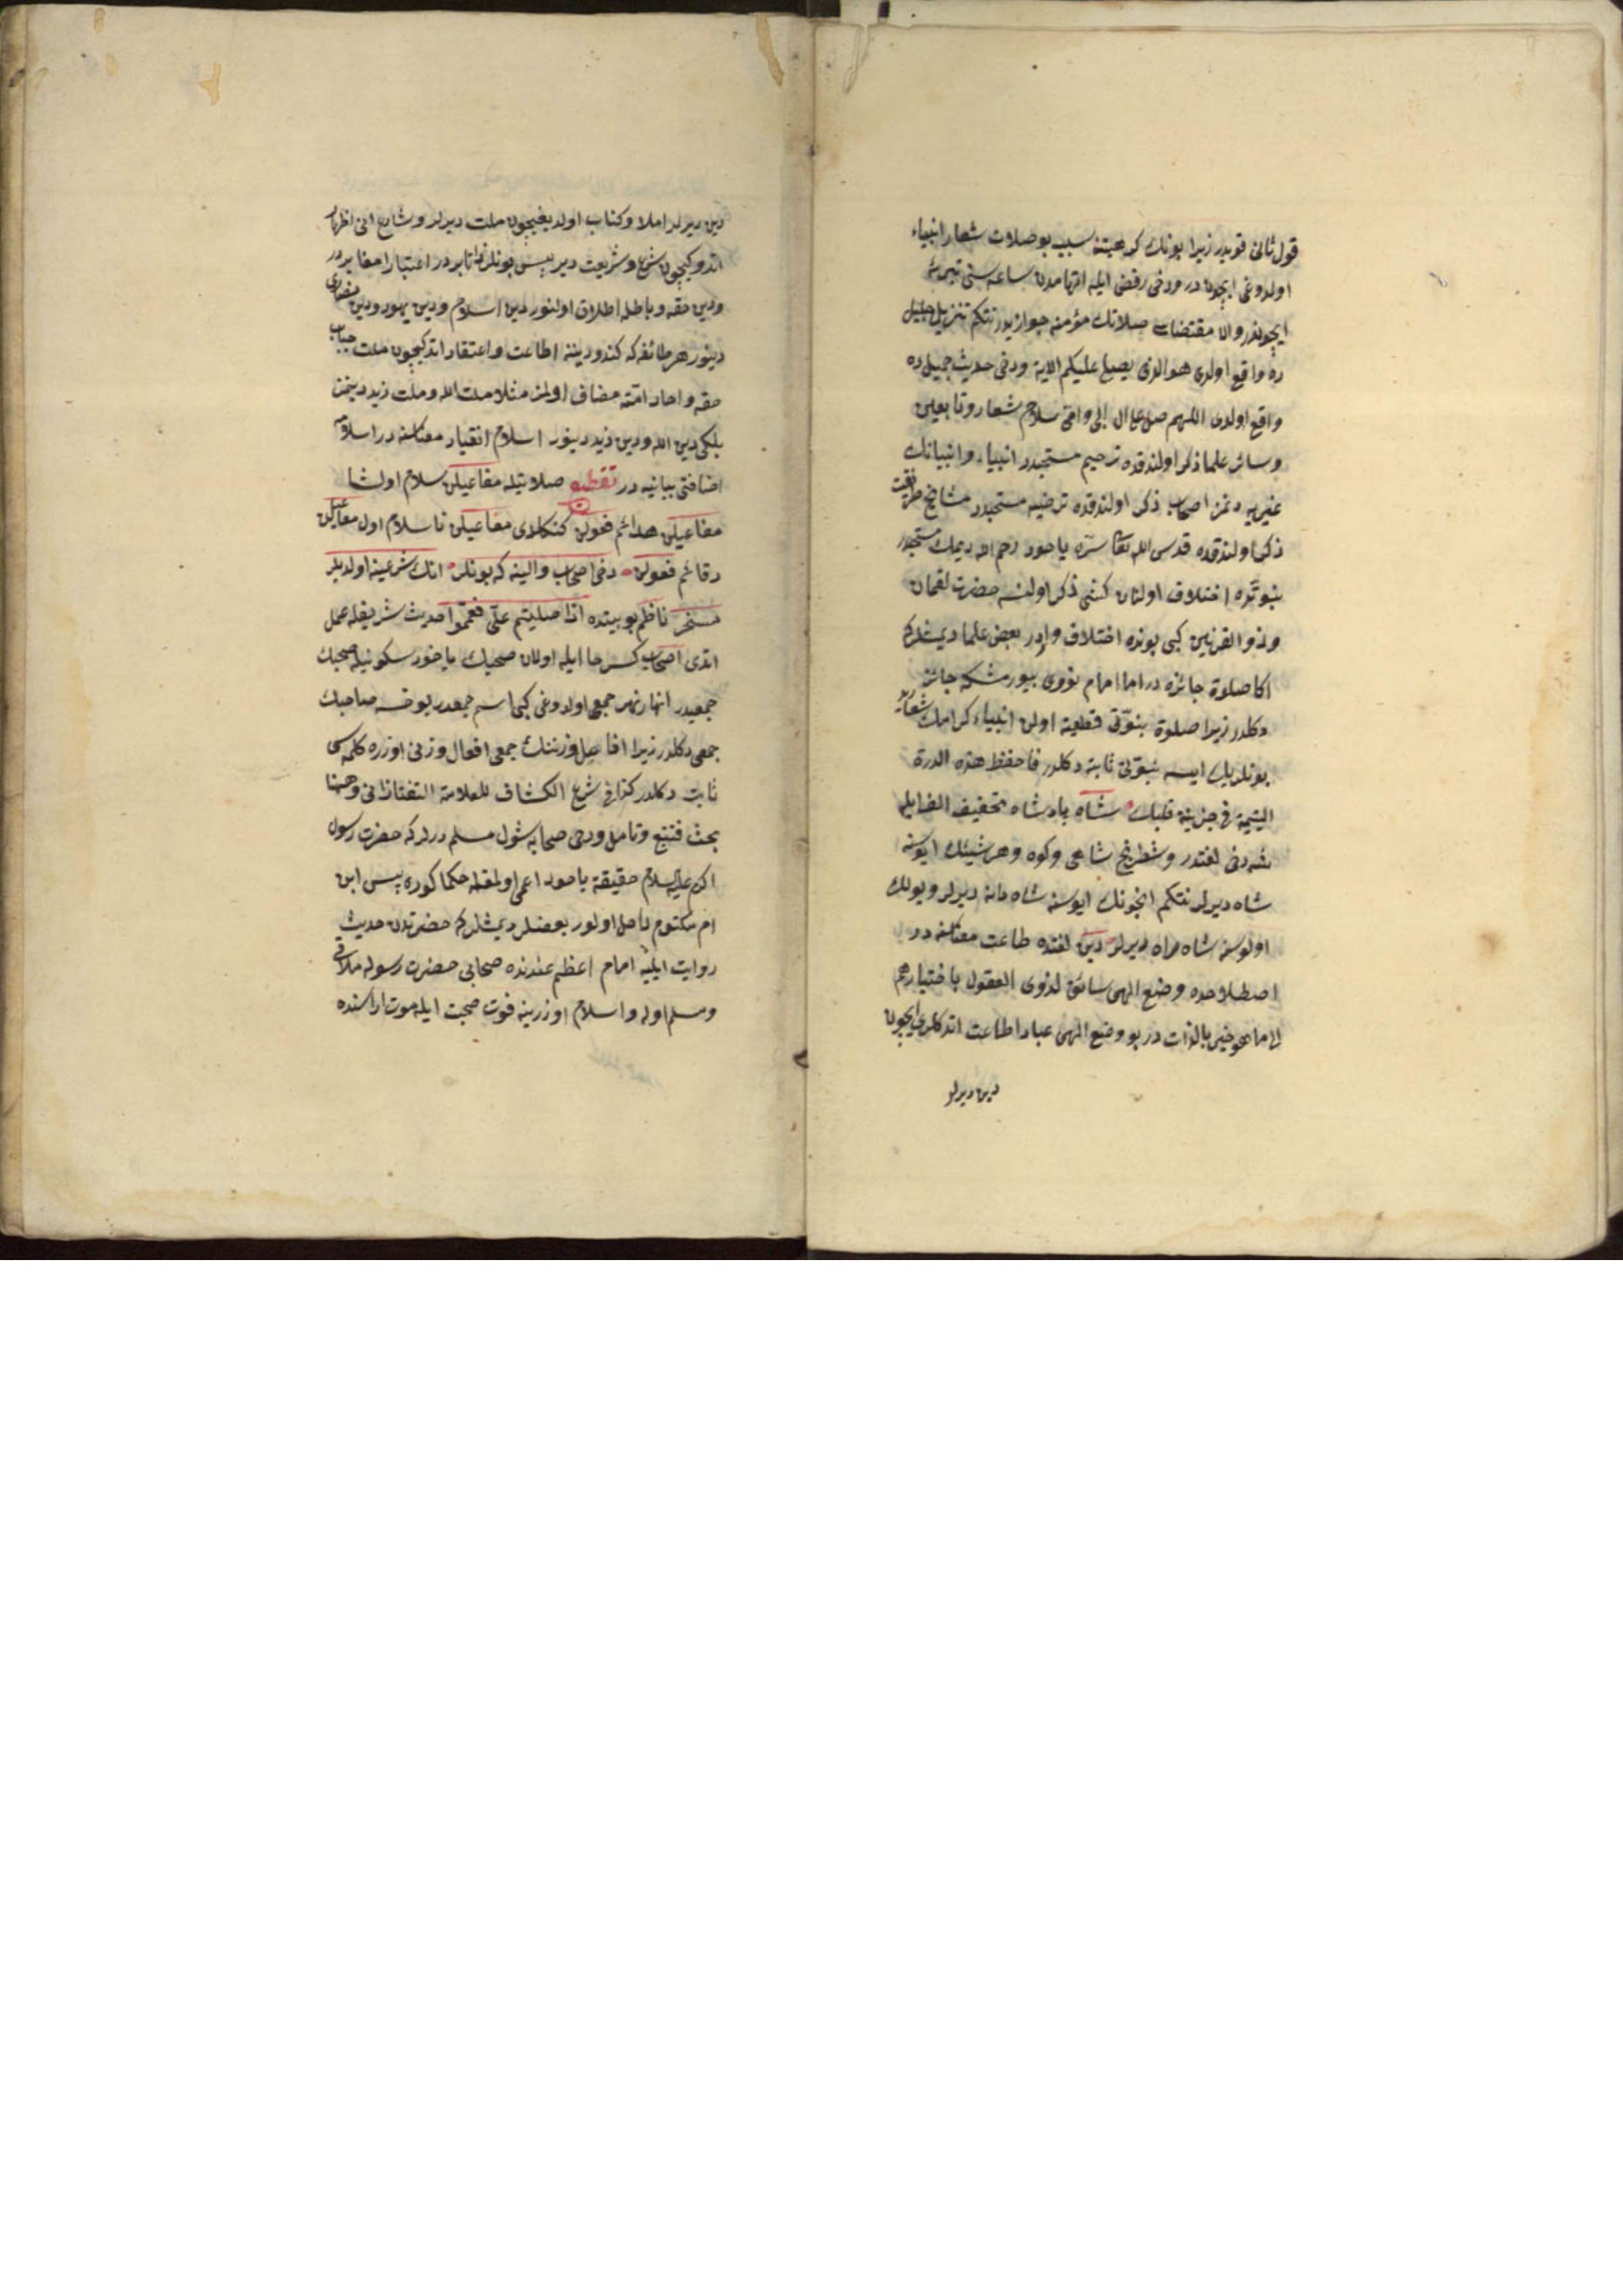 قول ثانی قویدر زیرا بونك كراهیتنه سبب بو صلات شعار انبیاء
اولدوغی ایچون در ودخی رفض ایله اتهامدن ساعه سنی تبرئه
ایچوندر والا مقتضای صلاتك مؤمنه جوازیدر نتكم تنزیل جلیل
ده واقع اولدی هو الذی یصلی علیكم الایة ودخی حدیث جمیل ده
واقع اولدی اللهم صل علی ال ابی واقی سلام شعار وتابعین
وسائر علما ذكر اولندقده ترحیم مستحبدر انبیاء وانبیانك
غیریه دخی اصحاب ذكر اولندقده ترضیه مستحبدر مشایخ طریقت
ذكر اولندقده قدس الله تعالی سره یاخود رحمه الله دیمك مستحبدر
نبوتده اختلاف اولنان كشی ذكر اولنسه حضرت لقمان
وذو القرنین كبی بونده اختلاف واردر بعض علما دیمشلركه
اكا صلوة جائزه در اما امام نووی بیورمشكه جائز
دكلدر زیرا صلوة نبوتی قطعیه اولن انبیاء كرامك شعاریدر
بونلریك ایسه نبوتی ثابته دكلدر فاحفظ هذه الدرة
الیتیمة فی خزینة قلبك شاه پادشاه تخفیف الف ایله
شه دخی لغتدر وشطرنج شاهی وكوه وهر شیئك ایوسنه
شاه دیرلر نتكم انجونك ایوسنه شاه دانه دیرلر ویولك
اولوسنه شاه راه دیرلر دین لغتده طاعت معناسنه در
اصطلاحده وضع الهی سائق لذوی العقول باختیارهم
الی ما هو خیر بالذات در بو وضع الهی عباد اطاعت اتدكلری ایچون
دین دیرلر
دین دیرلر املا وكتاب اولدیغیچون ملت دیرلر وشارع انی اظهار
اتدوكیچون شرع وشریعت دیر پس بونلر ذاتا بردر اعتبارا مغایردر
ودین حقه وباطله اطلاق اولنور دین اسلام ودین یهود ودین نصاری
دینور هر طائفه كه كندو دیننه اطاعت واعتقاد اتدكیچون ملت جناب
حقه واحاد امته مضاف اولمز مثلا ملت الله وملت زید دینمز
بلكی دین الله ودین زید دینور اسلام انقیاد معناسنه در اسلامه
اضافتی بیانیه در تقطیه صلاتیله مفاعیلن سلام اولشا
مفاعیلن هدائم فعولن كنكلادی مفاعیلن نا سلام اول مفاعیلن
دقائم فعولن دخی اصحاب والینه كه بونلر انك شرعینه اولدیلر
مسخر ناظم بو بیتده اذا صلیتم علی فعمموا حدیث شریفله عمل
اتدی اصحاب كسر حا ایله اولان صحبك یاخود سكونیله صحبك
جمعیدر انهار نهر جمعی اولدوغی كبی اسم جمعدر یوخسه صاحبك
جمعی دكلدر زیرا افاعل وزننك جمعی افعال وزنی اوزره كلمه سی
ثابت دكلدر كذا فی شرح الكشاف للعلامة التفتازانی وههنا
بحث فتتبع وتامل ودخی صحابه شول مسلم درلر كه حضرت رسول
اكرم علیه السلام حقیقة یاخود اعمی اولمغله حكما كوره پس ابن
ام مكتوم داخل اولور بعضلر دیمشلركه حضرتدن حدیث
روایت ایلیه امام اعظم عندنده صحابی حضرت رسوله ملاقی
ومسلم اوله واسلام اوزرینه فوت صحبت ایله موت اراسنده